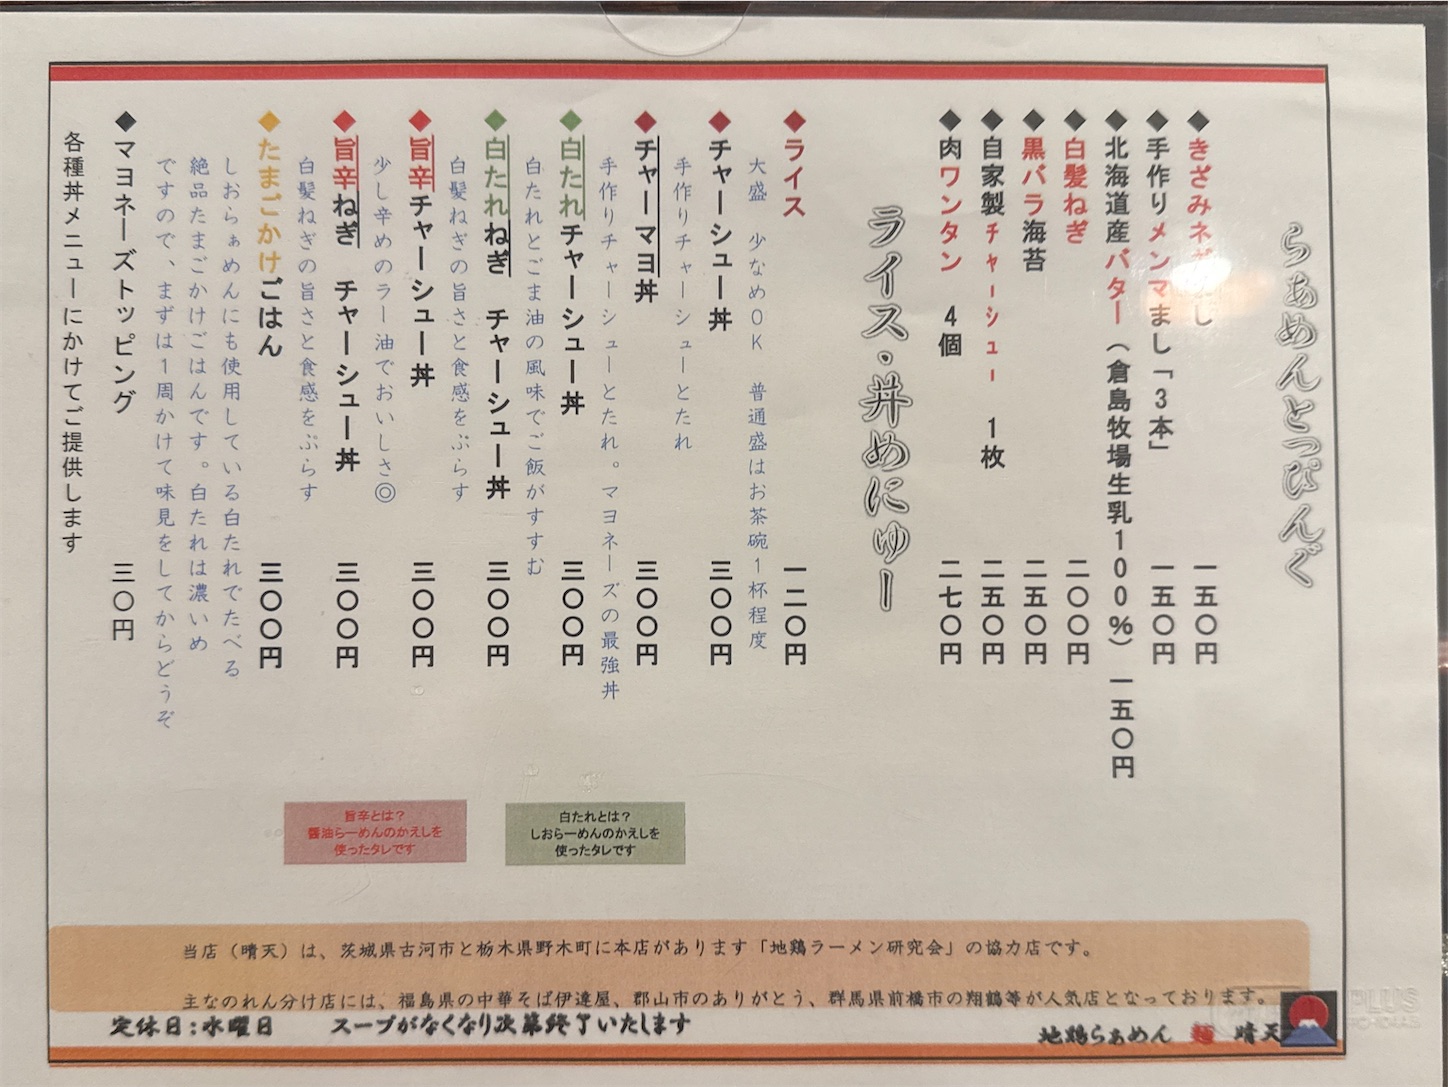 らぁめんとっぴんぐ
◆きざみネ し 一五〇円
◆手作りメンマまし「3本」 一五〇円
◆北海道産バター（倉島牧場生乳100%） 一五〇円
◆白髪ねぎ 二〇〇円
◆黒バラ海苔 二五〇円
◆自家製チャーシュー 1枚 二五〇円
◆肉ワンタン 4個 二七〇円
ライス・丼めにゅー
◆ライス 一二〇円
大盛 少なめOK 普通盛はお茶碗1杯程度
◆チャーシュー丼 三〇〇円
手作りチャーシューとたれ
◆チャーマヨ丼 三〇〇円
手作りチャーシューとたれ。マヨネーズの最強丼
◆白たれチャーシュー丼 三〇〇円
白たれとごま油の風味でご飯がすすむ
◆白たれねぎ チャーシュー丼 三〇〇円
白髪ねぎの旨さと食感をぷらす
◆旨辛チャーシュー丼 三〇〇円
少し辛めのラー油でおいしさ◎
◆旨辛ねぎ チャーシュー丼 三〇〇円
白髪ねぎの旨さと食感をぷらす
◆たまごかけごはん 三〇〇円
しおらぁめんにも使用している白たれでたべる
絶品たまごかけごはんです。白たれは濃いめ
ですので、まずは1周かけて味見をしてからどうぞ
◆マヨネーズトッピング 三〇円
各種丼メニューにかけてご提供します
旨辛とは？
醤油らーめんのかえしを
使ったタレです
白たれとは？
しおらーめんのかえしを
使ったタレです
当店（晴天）は、茨城県古河市と栃木県野木町に本店があります「地鶏ラーメン研究会」の協力店です。
主なのれん分け店には、福島県の中華そば伊達屋、郡山市のありがとう、群馬県前橋市の翔鶴等が人気店となっております。
定休日：水曜日 スープがなくなり次第終了いたします
地鶏らぁめん 麺 晴天
PLUS